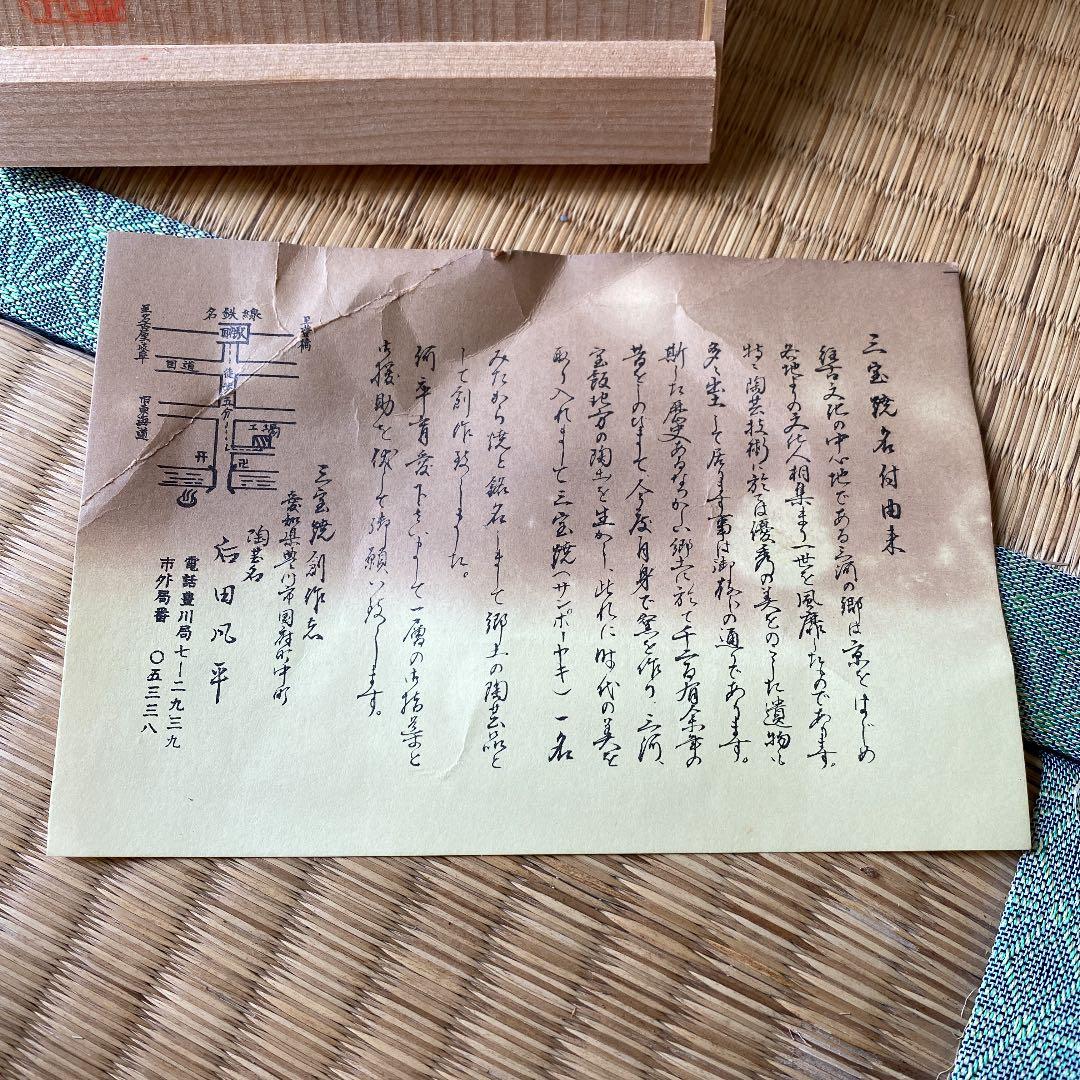 三宝焼名付由来
経古文化の中心地である三河の郷は京をはじめ
各地よりの文化人相集まり一世を風靡したものであります。
特に陶芸技術に於ては優秀の美をのこした遺物も
多々出土して居ります事は御存じの通りであります。
斯した歴史あるなつかしい郷土に於て千二百有余年の
昔をしのびまして今度自身で窯を作り、三河、
宝飯地方の陶土を生かし、此れに時代の美を
取り入れまして三宝焼(サンポーヤキ)一名
みたから焼と銘名しまして郷土の陶芸品と
して創作致しました。
何卒育愛下さいまして一層の御指導と
御援助を伏して御願い致します。
三宝焼創作志
愛知県豊川市国府町中町
陶芸名
石田凡平
電話豊川局七ー二九三九
市外局番 〇五三三八
名鉄線
至豊橋
至名古屋・岐阜
国府駅
国道
徒歩五分
旧東海道
工場